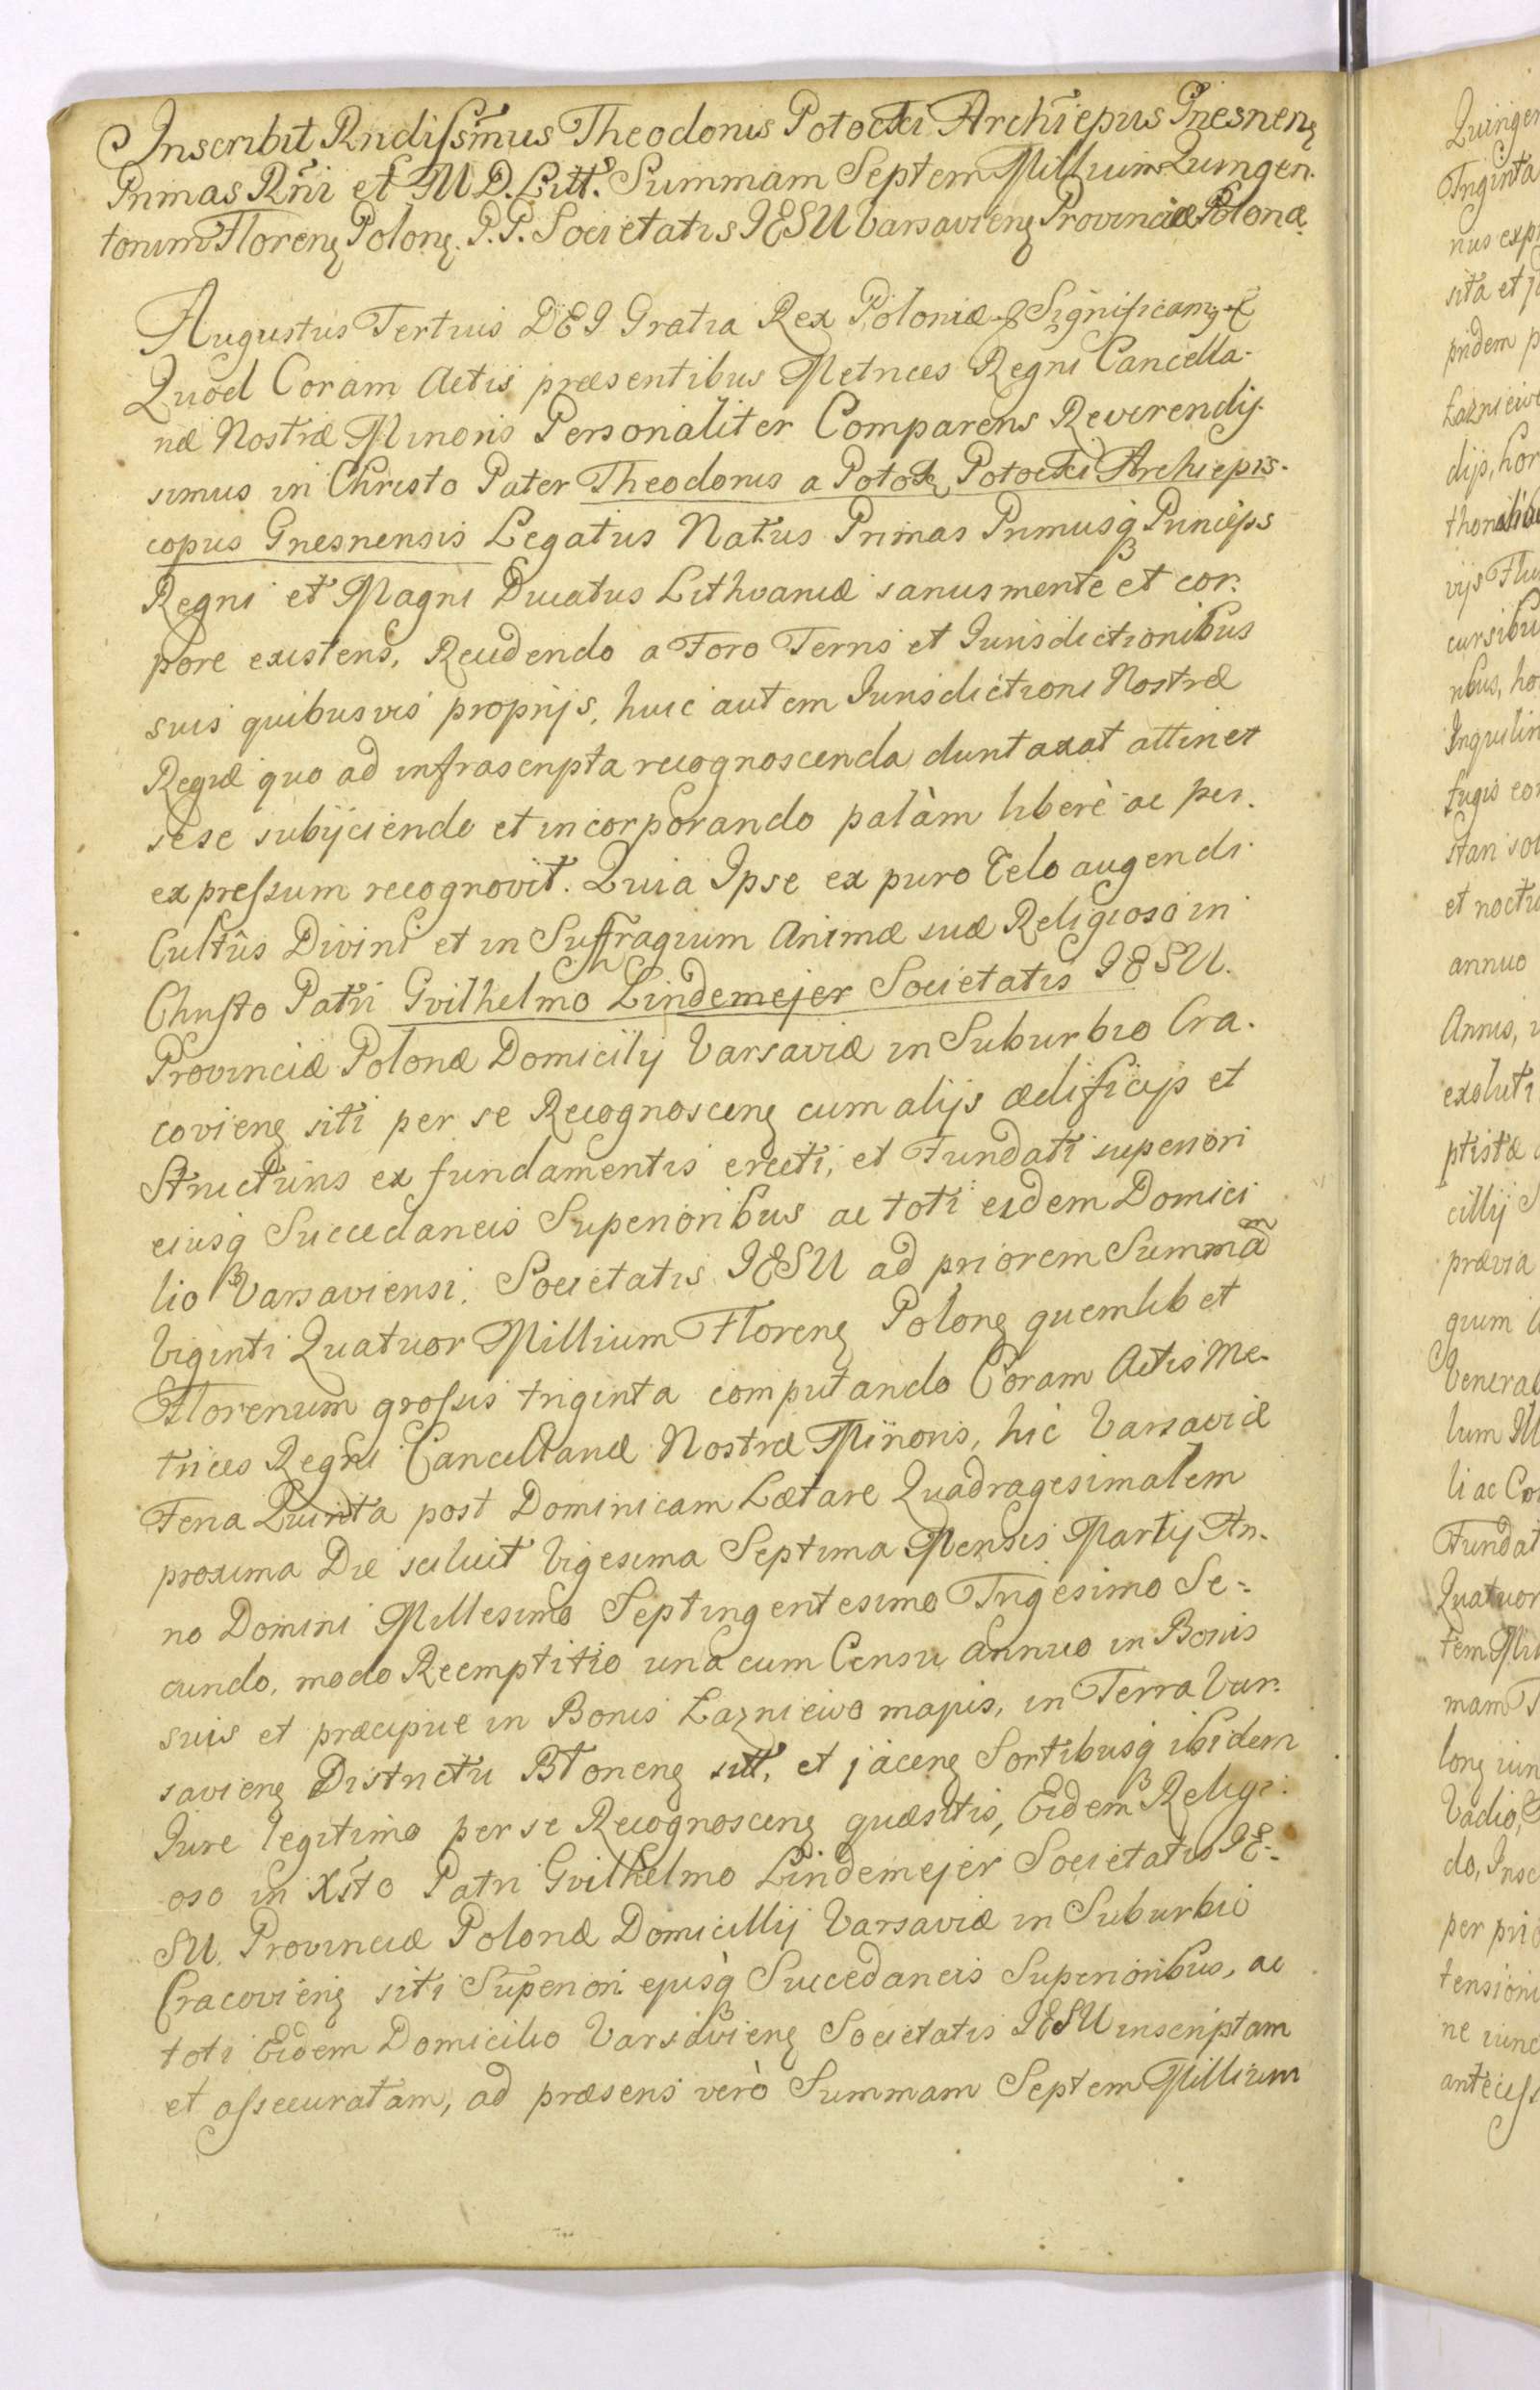 Inscribit Rndissm̃us Theodorus Potocki Archiẽpus Gnesnenᶎ
Primas Rñi et M D. Litt. Summam Septem Millium Quingen.
torum Florenᶎ Polonᶎ. P.P. Societatis IESU Varsavienᶎ Provinciæ Polonæ
Augustus Tertius DEI Gratia Rex Poloniæ & Significamᶎ &
Quod Coram Actis præsentibus Metrices Regni Cancella-
riæ Nostræ Minoris Personaliter Comparens Reverendis-
simus in Christo Pater Theodorus a Potok Potocki Archiepis-
copus Gnesnensis Legatus Natus Primas Primusq Princeps
Regni et Magni Ducatus Lithvaniæ sanus mente et cor-
pore existens, Recedendo a Foro Terris et Iurisdictionibus
suis quibusvis proprijs, huic autem Iurisdictioni Nostræ
Regiæ quo ad infrascripta recognoscenda duntaxat attinet
sese subijciendo et incorporando palàm liberè ac per-
expressum recognovit. Quia Ipse ex puro Zelo augendi
Cultûs Divini et in Suffragium Animæ suæ Religioso in
Christo Patri Gvilhelmo Lindemejer Societatis IESU.
Provinciæ Polonæ Domicilij Varsaviæ in Suburbio Cra-
covienᶎ siti per se Recognoscenᶎ cum alijs ædificijs et
Structuris ex fundamentis erecti, et Fundati superiori
eiusq Succedaneis Superioribus ac toti eidem Domici
lio Varsaviensi Societatis IESU ad priorem Summam̃
Viginti Quatuor Millium Florenᶎ Polonᶎ quemlibet
Florenum grossis triginta computando Coram Actis Me-
trices Regni Cancellariæ Nostræ Minoris, hic Varsaviæ
Feria Quinta post Dominicam Lætare Quadragesimalem
proxima Die scilicet Vigesima Septima Mensis Martij An-
no Domini Millesimo Septingentesimo Trigesimo Se-
cundo, modo Reemptitio una cum Censu annuo in Bonis
suis et præcipue in Bonis Łazniewo majus, in Terra Var-
savienᶎ Districtu Błonenᶎ sitt, et jacenᶎ Sortibusq ibidem
Jure legitimo per se Recognoscenᶎ quæsitis, Eidem Religi-
oso in Xsto Patri Gvilhelmo Lindemejer Societatis IE-
SU. Provinciæ Polonæ Domicillij Varsaviæ in Suburbio
Cracovienᶎ siti Superiori ejusq Succedaneis Superioribus, ac
toti Eidem Domicilio Varsavienᶎ Societatis IESU inscriptam
et assecuratam, ad præsens verò Summam Septem Millium